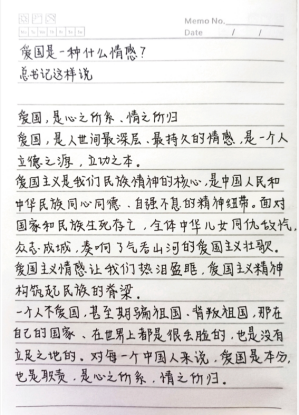 Memo No.
Date / /
爱国是一种什么情感?
总书记这样说
爱国,是心之所系、情之所归
爱国,是人世间最深层、最持久的情感,是一个人
立德之源,立功之本。
爱国主义是我们民族精神的核心,是中国人民和
中华民族同心同德、自强不息的精神纽带。面对
国家和民族生死存亡,全体中华儿女同仇敌忾,
众志成城,奏响了气吞山河的爱国主义壮歌。
爱国主义情感让我们热泪盈眶,爱国主义精神
构筑起民族的脊梁。
一个人不爱国,甚至欺骗祖国、背叛祖国,那在
自己的国家、在世界上都是很丢脸的,也是没有
立足之地的。对每一个中国人来说,爱国是本分,
也是职责,是心之所系,情之所归。